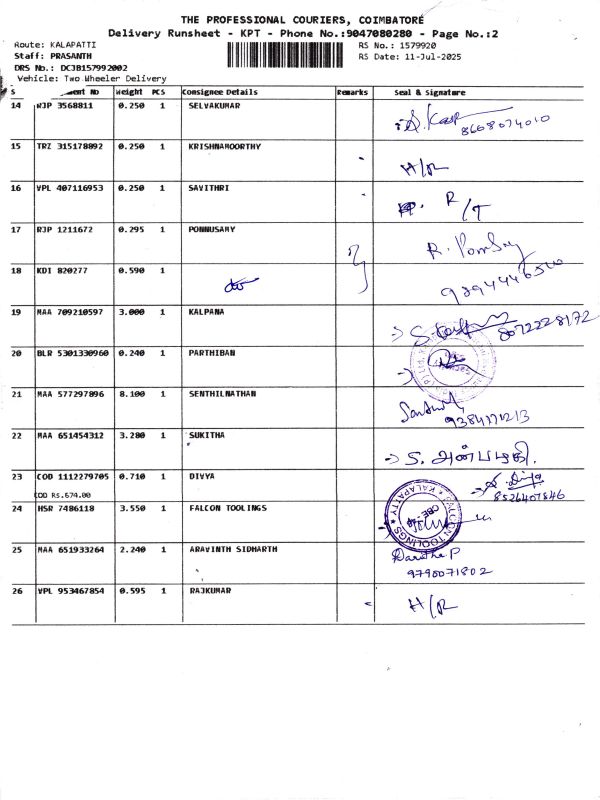 THE PROFESSIONAL COURIERS, COIMBATORE
Delivery Runsheet - KPT - Phone No.:9047080280 - Page No.:2
Route: KALAPATTI RS No.: 1579920
Staff: PRASANTH RS Date: 11-Jul-2025
DRS No.: DCJB157992002
Vehicle: Two Wheeler Delivery
S No Weight PCS Consignee Details Remarks Seal & Signature
14 RJP 3568811 0.250 1 SELVAKUMAR
8608074010
15 TRZ 315178892 0.250 1 KRISHNAMOORTHY H/R
16 VPL 407116953 0.250 1 SAVITHRI R/T
17 RJP 1211672 0.295 1 PONNUSAMY
18 KDI 820277 0.590 1
19 MAA 709210597 3.000 1 KALPANA 8072228172
20 BLR 5301330960 0.240 1 PARTHIBAN
21 MAA 577297896 8.100 1 SENTHILNATHAN
9384171213
22 MAA 651454312 3.280 1 SUKITHA
23 COD 1112279705 0.710 1 DIVYA
8526407846
COD Rs.674.00
24 HSR 7486118 3.550 1 FALCON TOOLINGS FALCON TOOLINGS KALAPATTY CBE-48
25 MAA 651933264 2.240 1 ARAVINTH SIDHARTH
9790071802
26 VPL 953467854 0.595 1 RAJKUMAR H/R